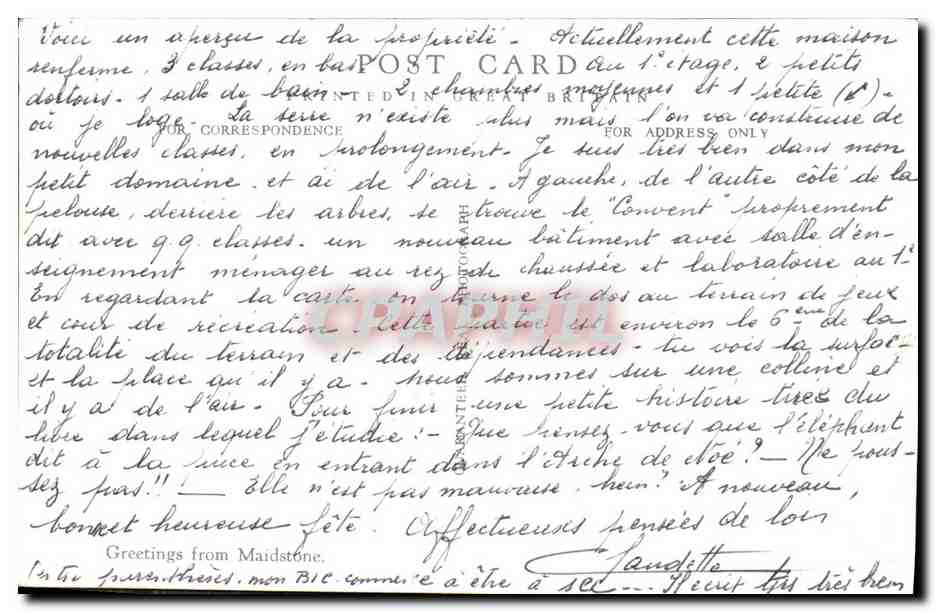 Voici un aperçu de la propriété - Actuellement cette maison
renferme, 3 classes, en bas - Au 1° étage, 2 petits
POST CARD
dortoirs - 1 salle de bain - 2 chambres moyennes et 1 petite
PRINTED IN GREAT BRITAIN
où je loge - La serre n'existe plus mais l'on va construire de
FOR CORRESPONDENCE
FOR ADDRESS ONLY
nouvelles classes, en prolongement - Je suis très bien dans mon
petit domaine - et ai de l'air - A gauche, de l'autre côté de la
pelouse, derrière les arbres, se trouve le "Convent" proprement
dit avec q.q. classes - un nouveau bâtiment avec salle d'en-
seignement ménager au rez de chaussée et laboratoire au 1°
En regardant la carte on tourne le dos au terrain de jeux
et cour de récréation - Cette partie est environ le 6ème de la
totalité du terrain et des dépendances - tu vois la surface
et la place qu'il y a - Nous sommes sur une colline et
il y a de l'air - Pour finir une petite histoire tirée du
livre dans lequel j'étudie : - Que pensez-vous que l'éléphant
dit à la puce en entrant dans l'Arche de Noé ? - Ne pous-
sez pas !! - Elle n'est pas mauvaise, hein ? A nouveau,
bonne et heureuse fête. Affectueuses pensées de loin
Greetings from Maidstone.
Claudette
Entre parenthèses, mon BIC commence à être à sec --- Il écrit très bien
PHOTOGRAPH
GUARANTEED
CPAPHIL